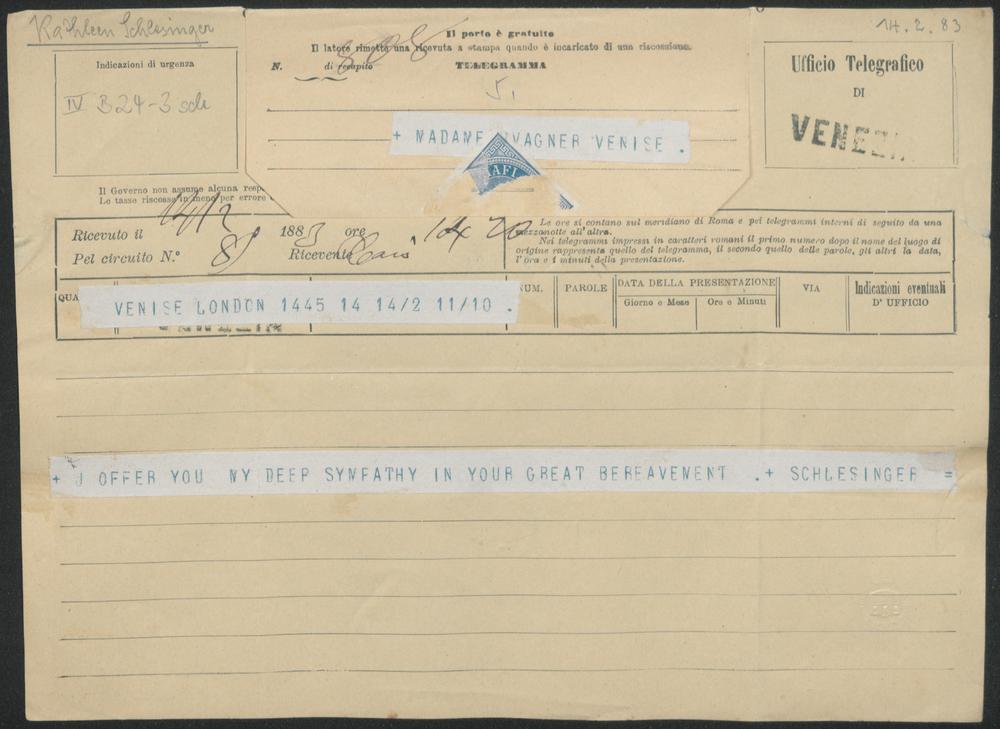 Kathleen Schlesinger
14.2.83
Indicazioni di urgenza
IV B24-3 sch
Il porto è gratuito
Il latore rimette una ricevuta a stampa quando è incaricato di una riscossione.
N. 808 di recapito TELEGRAMMA
5.
+ MADAME WAGNER VENISE .
AFI
Ufficio Telegrafico
DI
VENEZ
Il Governo non assume alcuna resp
Le tasse riscosse in meno per errore
Ricevuto il 14/2 1883 ore 14 20
Pel circuito N.º 8 Ricevente
Le ore si contano sul meridiano di Roma e pei telegrammi interni di seguito da una
mezzanotte all'altra.
Nei telegrammi impressi in caratteri romani il primo numero dopo il nome del luogo di
origine rappresenta quello del telegramma, il secondo quello delle parole, gli altri la data,
l'ora e i minuti della presentazione.
QUA
NUM.
PAROLE
DATA DELLA PRESENTAZIONE
Giorno e Mese
Ore e Minuti
VIA
Indicazioni eventuali
D' UFFICIO
VENISE LONDON 1445 14 14/2 11/10 .
+ J OFFER YOU MY DEEP SYMPATHY IN YOUR GREAT BEREAVEMENT .+ SCHLESINGER =